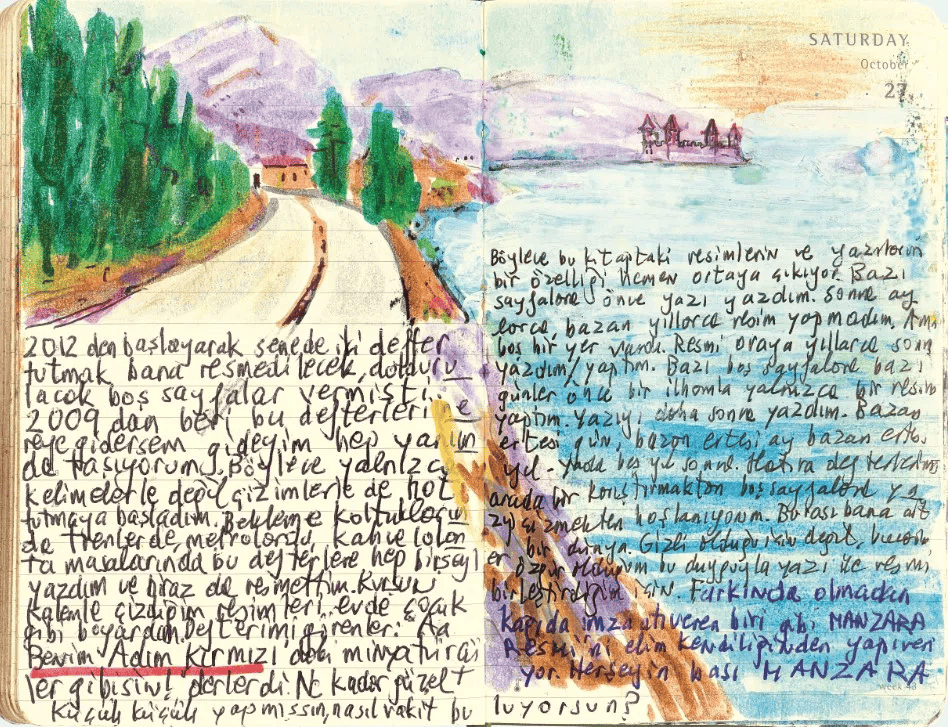 2012 den başlayarak senede iki defter
tutmak bana resmedilecek, dolduru
lacak boş sayfalar vermişti.
2009 dan beri bu defterleri e
reye gidersem gideyim hep yanım
da taşıyorum. Böylece yalnızca
kelimelerle değil çizimlerle de not
tutmaya başladım. Bekleme koltukların
da trenlerde, metrolarda, kahve lokan
ta masalarında bu defterlere hep birşey
yazdım ve biraz da resmettim. Kurşun
kalemle çizdiğim resimleri evde çocuk
gibi boyardım. Defterimi görenler: Aa
Benim Adım Kırmızı daki minyatürcü
ler gibisin! derlerdi. Ne kadar güzel
küçük küçük yapmışsın, nasıl vakit bu
SATURDAY
October
27
Böylece bu kitaptaki resimlerin ve yazıların
bir özelliği hemen ortaya çıkıyor. Bazı
sayfalara önce yazı yazdım. Sonra ay
larca, bazan yıllarca resim yapmadım. Ama
boş bir yer vardı. Resmi oraya yıllarca sonra
yazdım/yaptım. Bazı boş sayfalara bazı
günler önce bir ilhamla yalnızca bir resim
yaptım. Yazıyı daha sonra yazdım. Bazan
ertesi gün, bazan ertesi ay bazan ertesi
yıl - yada beş yıl sonra. Hatıra defterlerimi
arada bir karıştırmaktan boş sayfalara ya
zı çizmekten hoşlanıyorum. Burası bana ait
bir dünya. Gizli olduğu için değil,
özgür bu duyguyla yazı ile resmi
birleştirdiğim için. Farkında olmadan
kapıda imza atıveren biri gibi MANZARA
Resmi ni elim kendiliğinden yapıveri
yor. Herşeyin başı MANZARA
week 43
luyorsun?